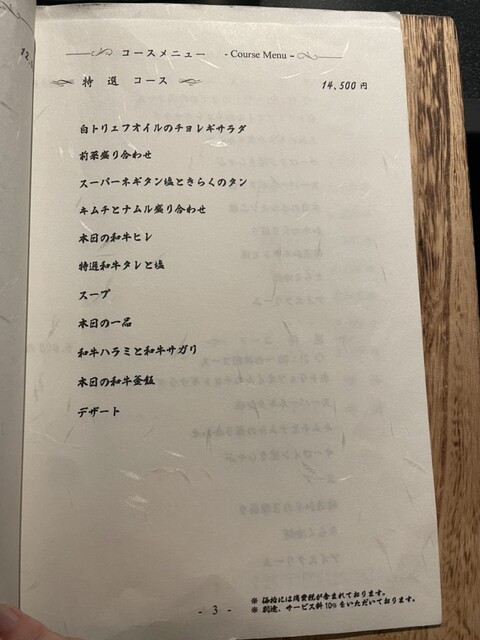 コースメニュー - Course Menu -
特選 コース 14,500円
白トリュフオイルのチョレギサラダ
前菜盛り合わせ
スーパーネギタン塩ときらくのタン
キムチとナムル盛り合わせ
本日の和牛ヒレ
特選和牛タレと塩
スープ
本日の一品
和牛ハラミと和牛サガリ
本日の和牛釜飯
デザート
※ 価格には消費税が含まれております。
※ 別途、サービス料10%をいただいております。
- 3 -